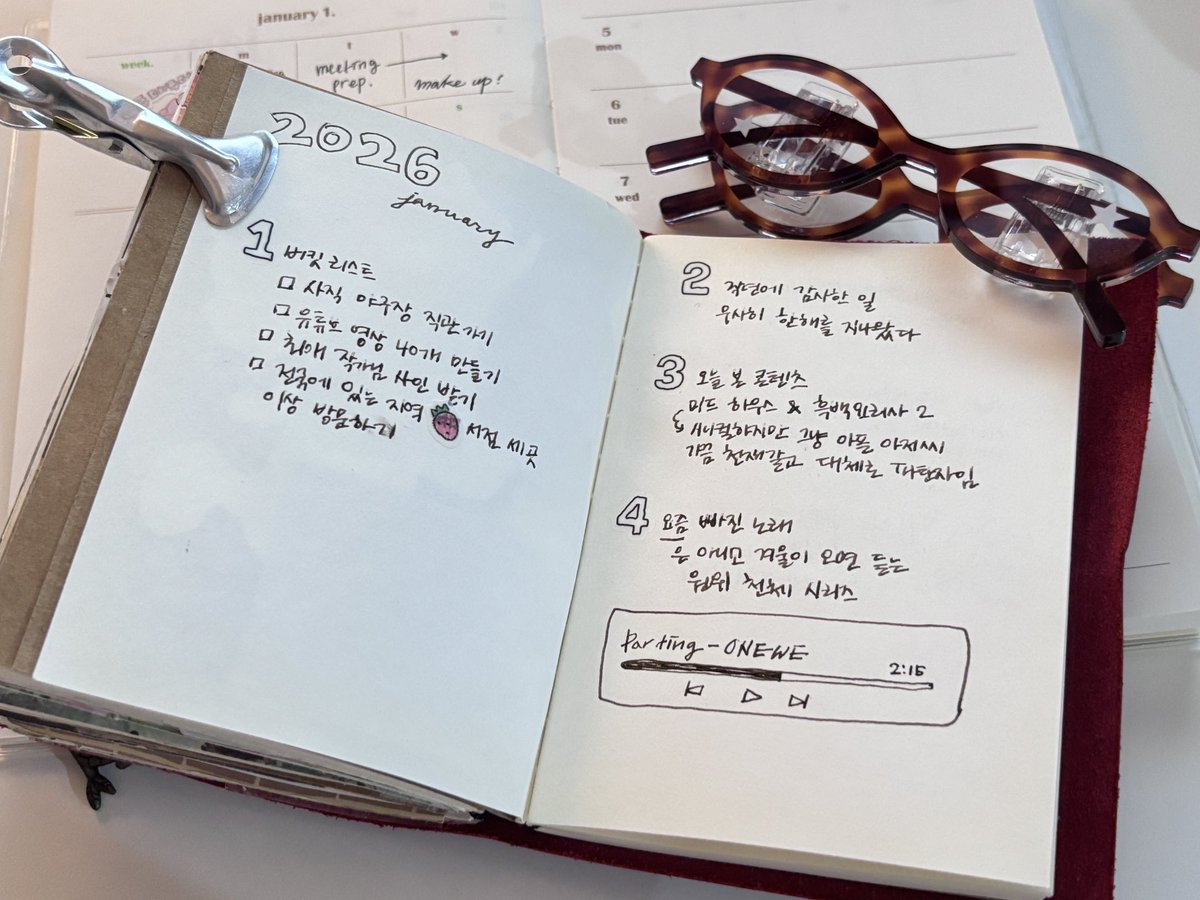 january 1.
week.
m
t
w
meeting
prep.
make up!
s
5
mon
6
tue
7
wed
2026
january
1 버킷 리스트
□ 사직 야구장 직관 가기
□ 유튜브 영상 40개 만들기
□ 최애 작가님 사인 받기
□ 전국에 있는 지역 서점 세 곳
이상 방문하기
2 작년에 감사한 일
무사히 한해를 지나왔다
3 오늘 본 콘텐츠
미드 하우스 & 흑백요리사 2
시니컬하지만 그냥 아픈 아저씨
가끔 천재같고 대체로
4 요즘 빠진 노래
은 아니고 겨울이 오면 듣는
원위 천체 시리즈
Parting - ONEWE
2:15